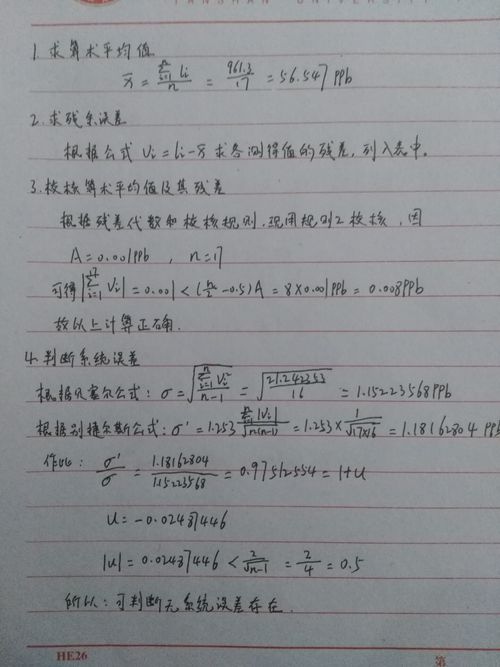 TANSHAN UNIVERSITY
1. 求算术平均值
x̄ = Σ(i=1→n) li / n = 961.3/17 = 56.547 ppb
2. 求残余误差
根据公式 Vi = li - x̄ 求各测得值的残差, 列入表中。
3. 校核算术平均值及其残差
根据残差代数和校核规则, 现用规则2校核, 因
A = 0.001ppb , n = 17
可得 |Σ(i=1→17) Vi| = 0.001 < (n/2 - 0.5)A = 8×0.001ppb = 0.008ppb
故以上计算正确.
4. 判断系统误差
根据贝塞尔公式: σ = √(Σ(i=1→n) Vi² / (n-1)) = √(21.242353/16) = 1.15223568ppb
根据别捷尔斯公式: σ' = 1.253 Σ(i=1→n) |Vi| / √(n(n-1)) = 1.253 × 1/√(17×16) = 1.18162804 ppb
作比: σ'/σ = 1.18162804/1.15223568 = 0.97512554 = 1+u
u = -0.02487446
|u| = 0.02487446 < 2/√(n-1) = 2/4 = 0.5
所以: 可判断无系统误差存在.
HE26 第